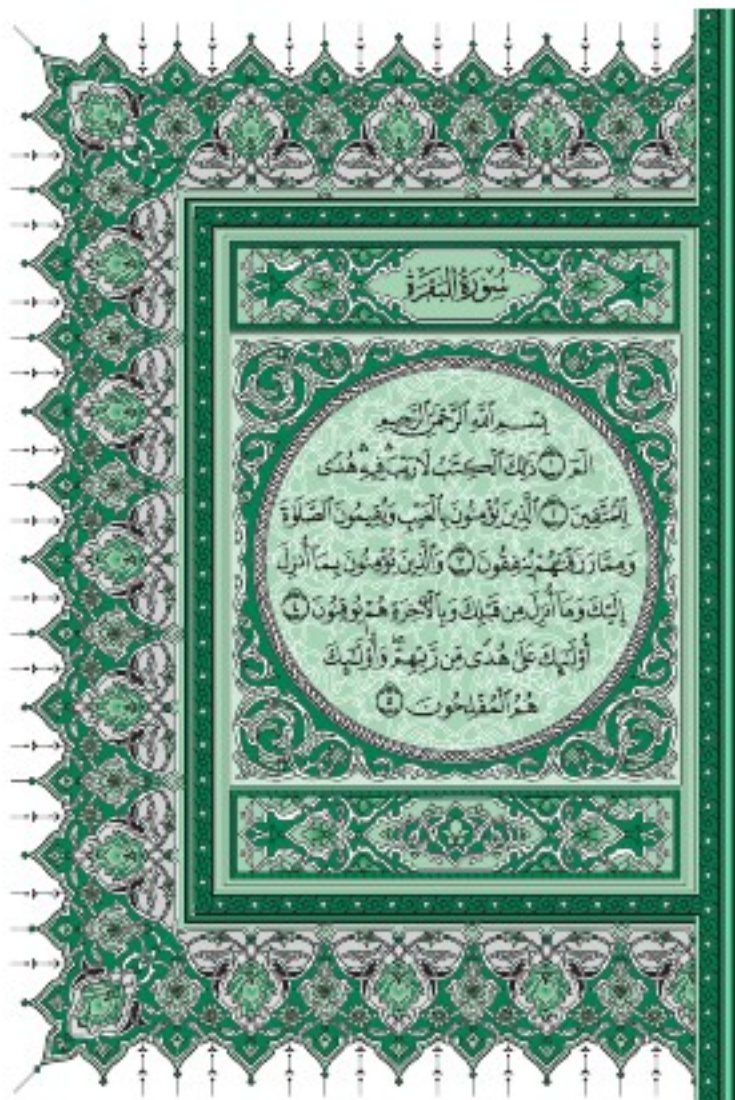 سُورَةُ الْبَقَرَةِ
بِسْمِ ٱللَّهِ ٱلرَّحْمَٰنِ ٱلرَّحِيمِ
الٓمٓ ١ ذَٰلِكَ ٱلْكِتَٰبُ لَا رَيْبَ ۛ فِيهِ ۛ هُدًى
لِّلْمُتَّقِينَ ٢ ٱلَّذِينَ يُؤْمِنُونَ بِٱلْغَيْبِ وَيُقِيمُونَ ٱلصَّلَوٰةَ
وَمِمَّا رَزَقْنَٰهُمْ يُنفِقُونَ ٣ وَٱلَّذِينَ يُؤْمِنُونَ بِمَآ أُنزِلَ
إِلَيْكَ وَمَآ أُنزِلَ مِن قَبْلِكَ وَبِٱلْءَاخِرَةِ هُمْ يُوقِنُونَ ٤
أُو۟لَٰٓئِكَ عَلَىٰ هُدًى مِّن رَّبِّهِمْ ۖ وَأُو۟لَٰٓئِكَ
هُمُ ٱلْمُفْلِحُونَ ٥